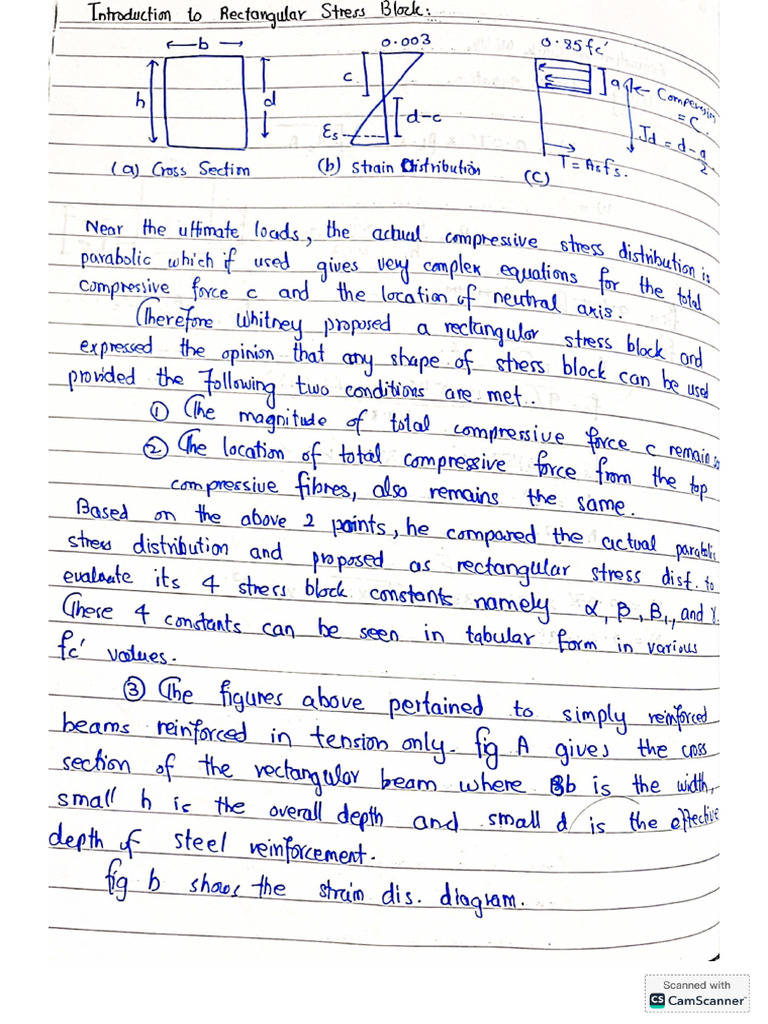 Introduction to Rectangular Stress Block:
b
h
d
(a) Cross Section
0.003
c
d-c
Es
(b) Strain Distribution
0.85fc'
a
Compression
= C.
Jd = d - a/2
T = Asfs.
(c)
Near the ultimate loads, the actual compressive stress distribution is
parabolic which if used gives very complex equations for the total
compressive force c and the location of neutral axis.
Therefore Whitney proposed a rectangular stress block and
expressed the opinion that any shape of stress block can be used
provided the following two conditions are met..
① The magnitude of total compressive force c remain
② The location of total compressive force from the top
compressive fibres, also remains the same.
Based on the above 2 points, he compared the actual parabolic
stress distribution and proposed as rectangular stress dist. to
evaluate its 4 stress block constants namely α, β, β1, and γ.
These 4 constants can be seen in tabular form in various
fc' values.
③ The figures above pertained to simply reinforced
beams reinforced in tension only. fig A gives the cross
section of the rectangular beam where b is the width,
small h is the overall depth and small d is the effective
depth of steel reinforcement.
fig b shows the strain dis. diagram.
Scanned with
CS CamScanner